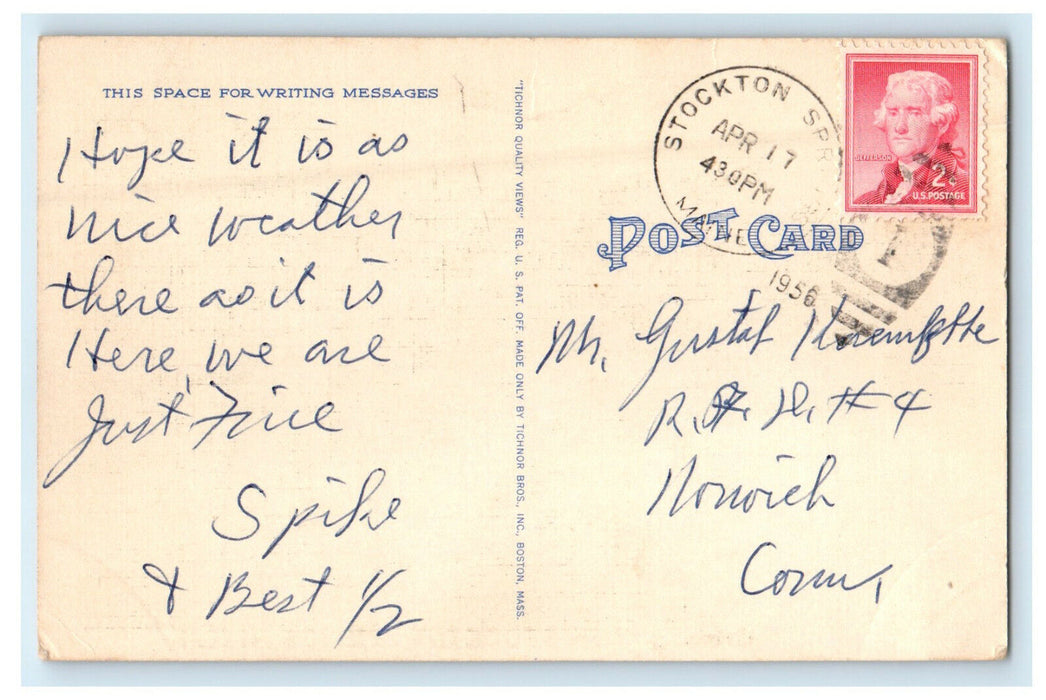 THIS SPACE FOR WRITING MESSAGES
Hope it is as
nice weather
there as it is
Here, we are
Just Fine
Spike
& Best 1/2
"TICHNOR QUALITY VIEWS" REG. U. S. PAT. OFF. MADE ONLY BY TICHNOR BROS., INC., BOSTON, MASS.
STOCKTON SPR
APR 17
430PM
MAINE
1956
JEFFERSON
2¢
U.S. POSTAGE
POST CARD
Mr. Gustaf
R. F. D. #4
Norwich
Conn.